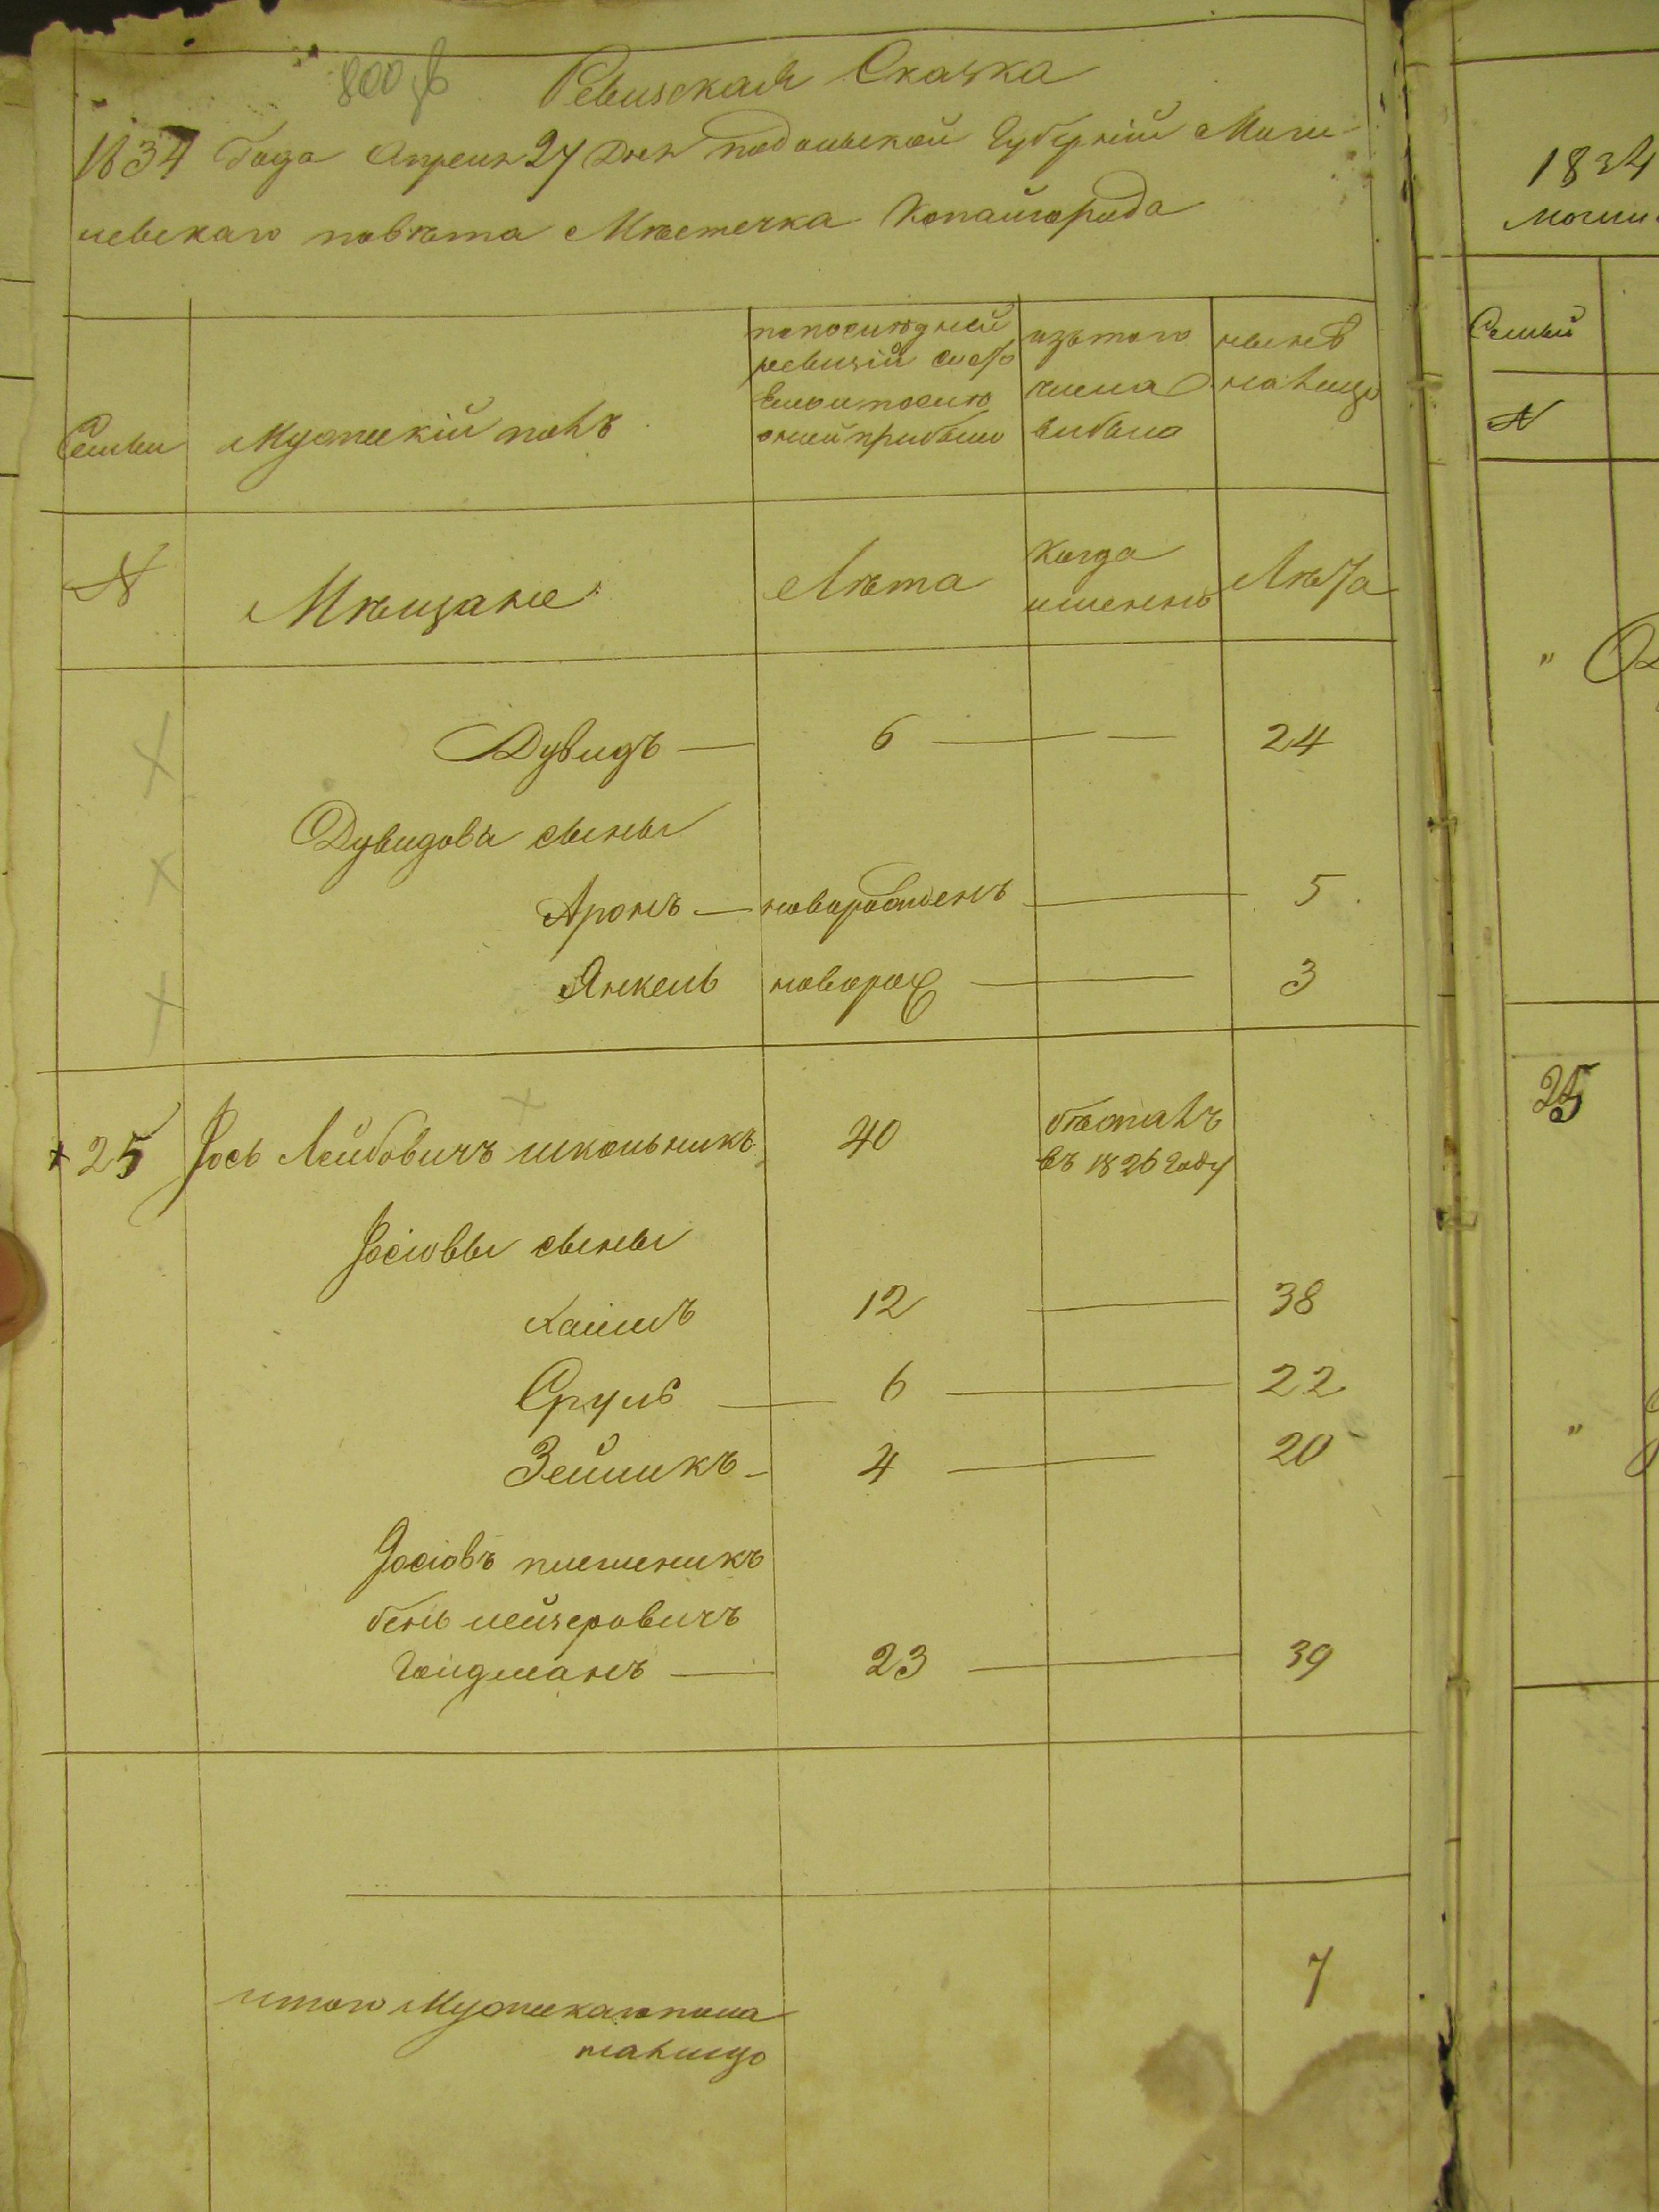 800
Ревизская Сказка
1834 Года Апреля 27 Дня подольской Губерній Моги-
левскаго повѣта Мѣстечка Копайгорода
Семьи
Мужескій полъ
попослѣдней
ревизій состо
яло и послѣ
оней прибыло
изътого
числа
выбыло
нынѣ
налицо
N
Мѣщане
Лѣта
Когда
именно
Лѣта
Дувидъ — 6 — — 24
Дувидовы сыны
Аронъ — новорожденъ — 5
Янкель новорож — 3
25 Іось Лейбовичъ школьникъ 40
бѣжалъ
въ 1826 Году
Іосіовы сыны
Хаимъ 12 — 38
Сруль — 6 — 22
Зейликъ — 4 — 20
Іосіовъ племеникъ
бень лейзеровичъ
Гойдманъ — 23 — 39
итого Мужескаго пола
налицо
7
1834
Моги
Семьи
N
"
25
"